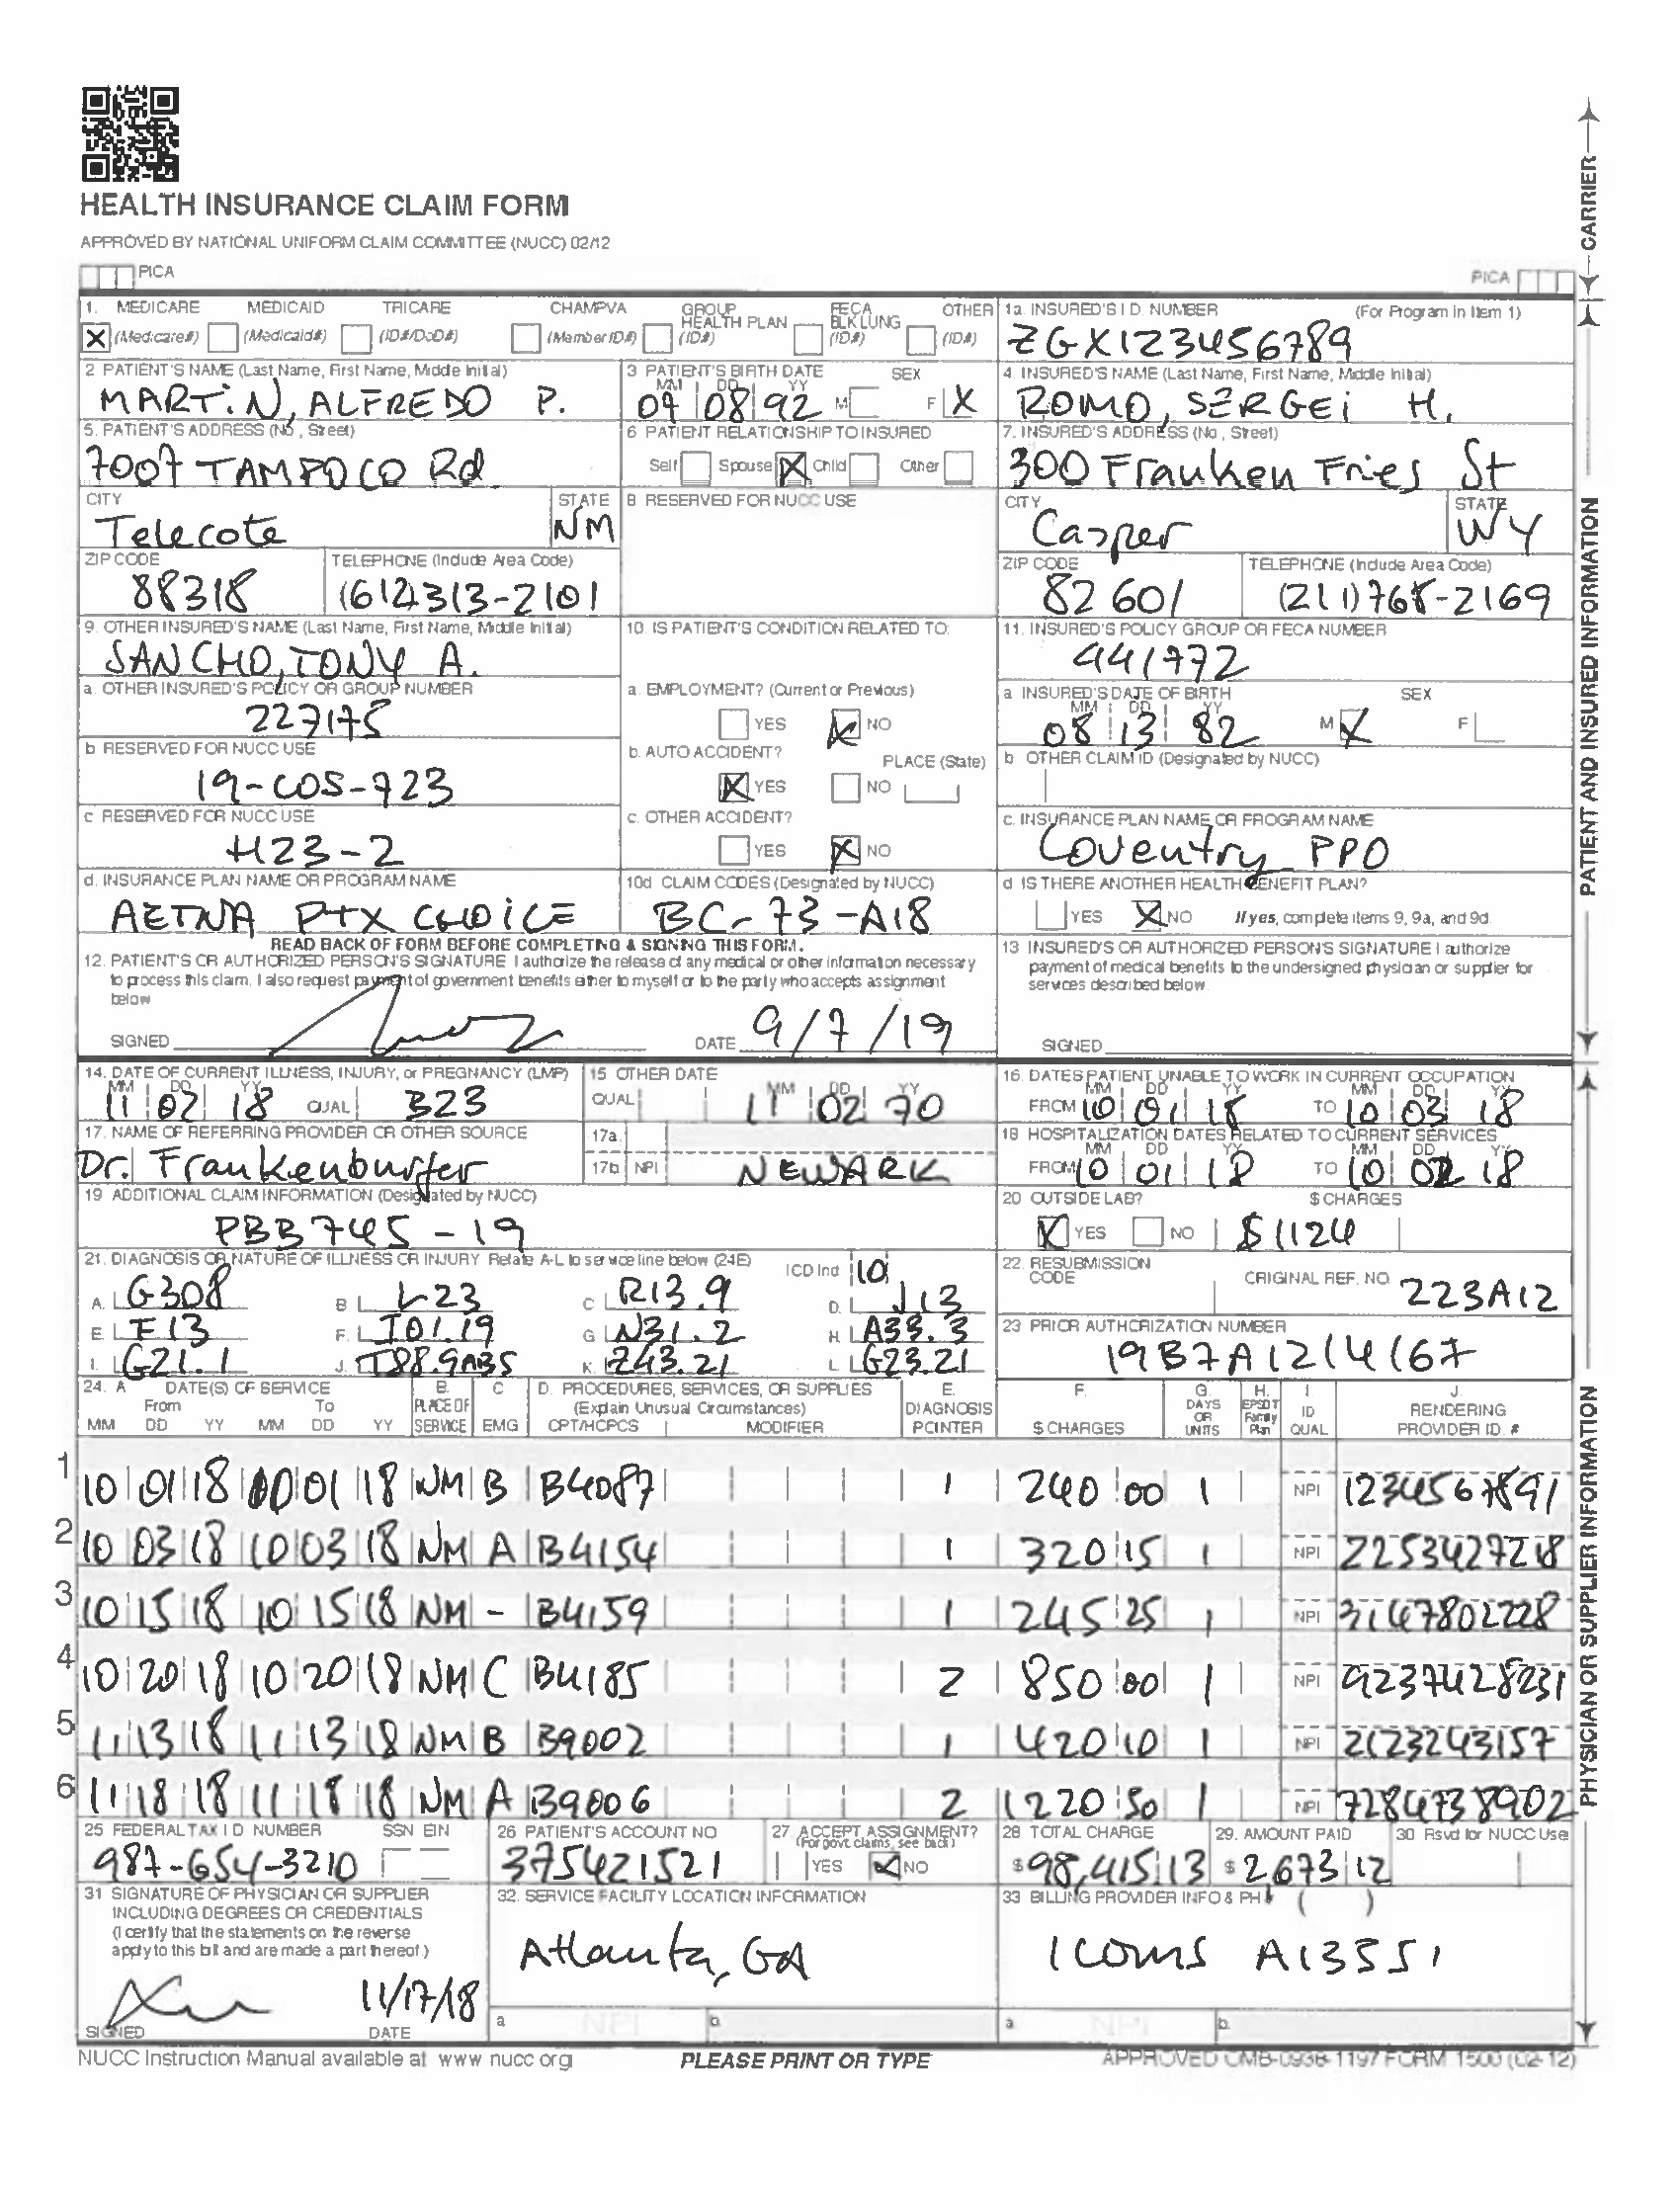 HEALTH INSURANCE CLAIM FORM
APPROVED BY NATIONAL UNIFORM CLAIM COMMITTEE (NUCC) 02/12
PICA PICA
CARRIER
1. MEDICARE MEDICAID TRICARE CHAMPVA GROUP HEALTH PLAN FECA BLK LUNG OTHER
X (Medicare#) (Medicaid#) (ID#/DoD#) (Member ID#) (ID#) (ID#) (ID#)
1a. INSURED'S I.D. NUMBER (For Program in Item 1)
ZGX123456789
2 PATIENT'S NAME (Last Name, First Name, Middle Initial)
MARTIN, ALFREDO P.
3 PATIENT'S BIRTH DATE SEX
MM DD YY
09 08 92 M F X
4. INSURED'S NAME (Last Name, First Name, Middle Initial)
ROMO, SERGEI H.
5. PATIENT'S ADDRESS (No., Street)
7007 TAMPOCO Rd
6 PATIENT RELATIONSHIP TO INSURED
Self Spouse X Child Other
7. INSURED'S ADDRESS (No., Street)
300 Franken Fries St
CITY STATE
Telecote NM
8 RESERVED FOR NUCC USE
CITY STATE
Casper WY
ZIP CODE TELEPHONE (Include Area Code)
88318 (612)313-2101
ZIP CODE TELEPHONE (Include Area Code)
82601 (211)768-2169
9. OTHER INSURED'S NAME (Last Name, First Name, Middle Initial)
SANCHO, TONY A.
10. IS PATIENT'S CONDITION RELATED TO:
11. INSURED'S POLICY GROUP OR FECA NUMBER
441772
a. OTHER INSURED'S POLICY OR GROUP NUMBER
227175
a. EMPLOYMENT? (Current or Previous)
YES X NO
a INSURED'S DATE OF BIRTH SEX
MM DD YY
08 13 82 M X F
b RESERVED FOR NUCC USE
19-COS-723
b. AUTO ACCIDENT? PLACE (State)
X YES NO
b OTHER CLAIM ID (Designated by NUCC)
c RESERVED FOR NUCC USE
H23-2
c. OTHER ACCIDENT?
YES X NO
c. INSURANCE PLAN NAME OR PROGRAM NAME
Coventry PPO
d. INSURANCE PLAN NAME OR PROGRAM NAME
AETNA PTX CHOICE
10d CLAIM CODES (Designated by NUCC)
BC-73-A18
d IS THERE ANOTHER HEALTH BENEFIT PLAN?
YES X NO If yes, complete items 9, 9a, and 9d.
PATIENT AND INSURED INFORMATION
READ BACK OF FORM BEFORE COMPLETING & SIGNING THIS FORM.
12. PATIENT'S OR AUTHORIZED PERSON'S SIGNATURE I authorize the release of any medical or other information necessary
to process this claim. I also request payment of government benefits either to myself or to the party who accepts assignment
below
SIGNED DATE 9/7/19
13 INSURED'S OR AUTHORIZED PERSON'S SIGNATURE I authorize
payment of medical benefits to the undersigned physician or supplier for
services described below.
SIGNED
14. DATE OF CURRENT ILLNESS, INJURY, or PREGNANCY (LMP)
MM DD YY
11 02 18 QUAL 323
15 OTHER DATE
QUAL MM DD YY
11 02 70
16. DATES PATIENT UNABLE TO WORK IN CURRENT OCCUPATION
MM DD YY MM DD YY
FROM 10 01 18 TO 10 03 18
17. NAME OF REFERRING PROVIDER OR OTHER SOURCE
Dr. Frankenburfer
17a.
17b NPI NEWARK
18 HOSPITALIZATION DATES RELATED TO CURRENT SERVICES
MM DD YY MM DD YY
FROM 10 01 18 TO 10 02 18
19 ADDITIONAL CLAIM INFORMATION (Designated by NUCC)
PBB745-19
20 OUTSIDE LAB? $ CHARGES
X YES NO $1124
21. DIAGNOSIS OR NATURE OF ILLNESS OR INJURY Relate A-L to service line below (24E) ICD Ind 10
A. G308 B L23 C R13.9 D. J13
E F13 F. I01.19 G N31.2 H. A33.3
I. G21.1 J. T88.9AB5 K. Z43.21 L. G23.21
22. RESUBMISSION CODE ORIGINAL REF. NO. 223A12
23 PRIOR AUTHORIZATION NUMBER
19B7A1214167
24. A DATE(S) OF SERVICE B. PLACE OF SERVICE C EMG D. PROCEDURES, SERVICES, OR SUPPLIES E. DIAGNOSIS POINTER F. $ CHARGES G. DAYS OR UNITS H. EPSDT Family Plan I ID QUAL J. RENDERING PROVIDER ID. #
From To (Explain Unusual Circumstances)
MM DD YY MM DD YY CPT/HCPCS MODIFIER
1 10 01 18 10 01 18 NM B B4087 1 240 00 1 NPI 1234567891
2 10 03 18 10 03 18 NM A B4154 1 320 15 1 NPI 2253427218
3 10 15 18 10 15 18 NM - B4159 1 245 25 1 NPI 3147802228
4 10 20 18 10 20 18 NM C B4185 2 850 00 1 NPI 9237428231
5 11 13 18 11 13 18 NM B B9002 1 420 10 1 NPI 2123243157
6 11 18 18 11 18 18 NM A B9006 2 1220 50 1 NPI 7284738902
PHYSICIAN OR SUPPLIER INFORMATION
25 FEDERAL TAX I.D. NUMBER SSN EIN
987-654-3210
26 PATIENT'S ACCOUNT NO
375421521
27 ACCEPT ASSIGNMENT?
(For govt. claims, see back)
YES X NO
28 TOTAL CHARGE
$ 98,415 13
29. AMOUNT PAID
$ 2,673 12
30 Rsvd for NUCC Use
31 SIGNATURE OF PHYSICIAN OR SUPPLIER
INCLUDING DEGREES OR CREDENTIALS
(I certify that the statements on the reverse
apply to this bill and are made a part thereof.)
11/17/18
SIGNED DATE
32. SERVICE FACILITY LOCATION INFORMATION
Atlanta, GA
a NPI b.
33 BILLING PROVIDER INFO & PH # ( )
Icoms A13551
a. NPI b.
NUCC Instruction Manual available at www nucc org
PLEASE PRINT OR TYPE
APPROVED OMB-0938-1197 FORM 1500 (02-12)